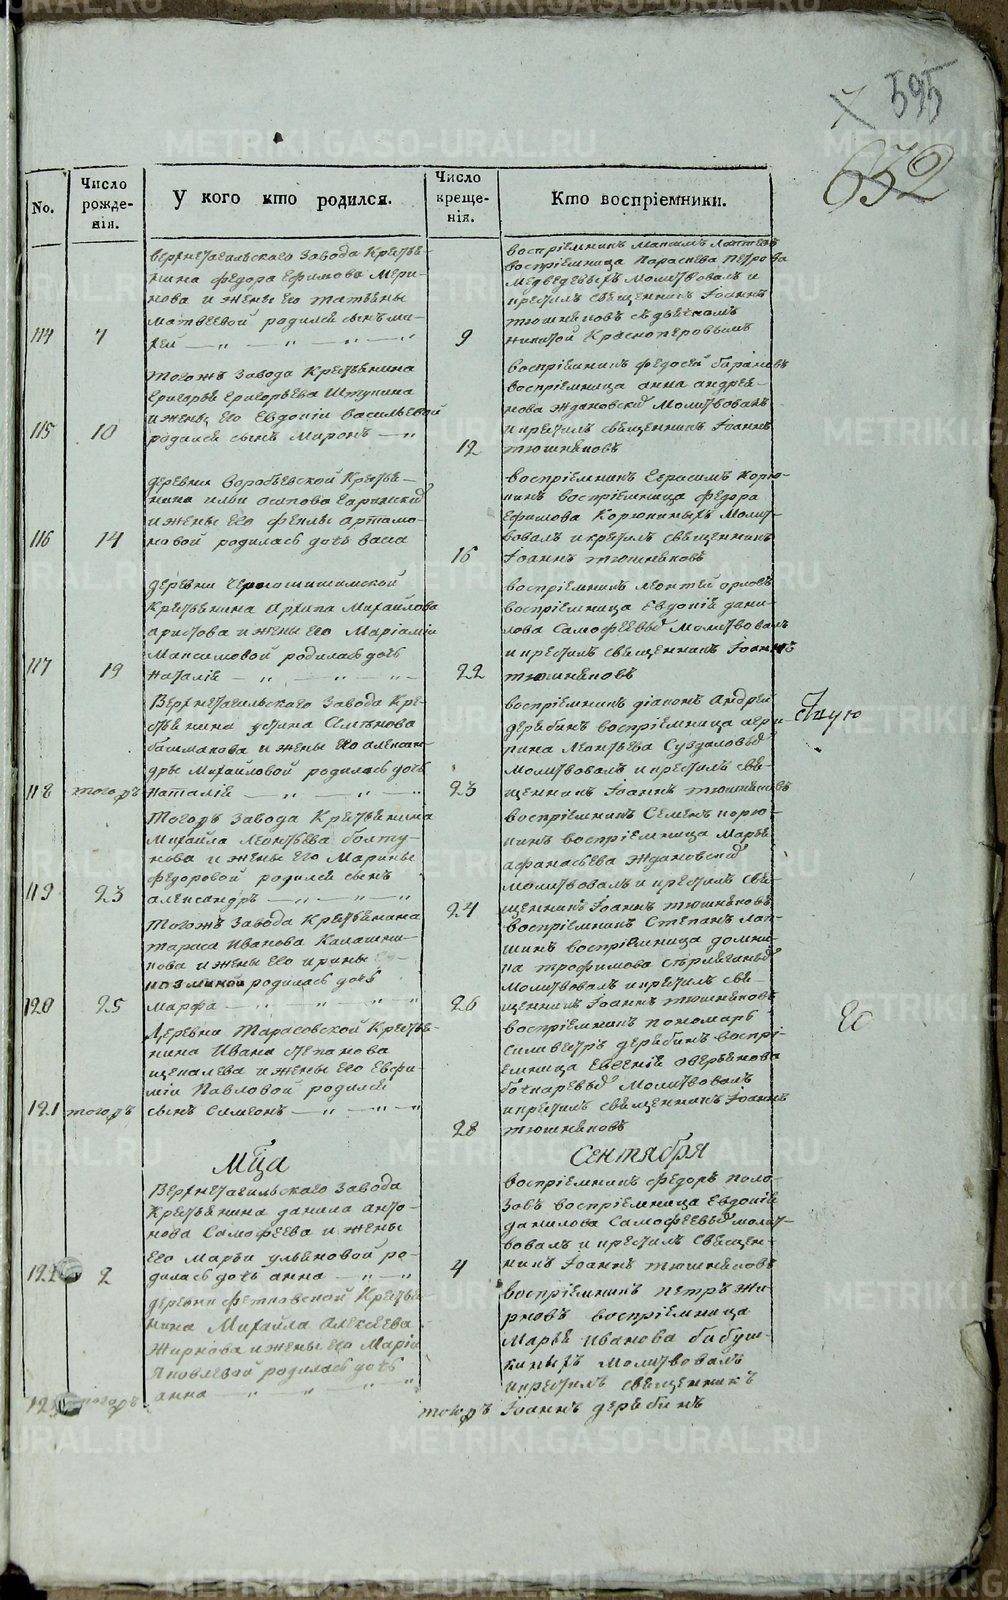 7 595
632
No.
Число рожде- нія.
У кого кто родился.
Число креще- нія.
Кто воспріемники.
114
7
верхнетагильскаго завода крестья-
нина федора ефимова мери-
нова и жены его татьяны
матвеевой родился сынъ ма-
кей
9
воспріемникъ максимъ лаптевъ
воспріемница параскева петрова
медведевыхъ молитвовалъ и
крестилъ священникъ Іоаннъ
тюшняковъ съ дьячкомъ
никитой красноперовымъ
115
10
тогожъ завода крестьянина
григорья григорьева
и жены его евдокіи васильевой
родился сынъ миронъ
12
воспріемникъ федосей
воспріемница анна андрея-
нова ждановскихъ молитвовалъ
и крестилъ священникъ Іоаннъ
тюшняковъ
116
14
деревни воробьевской крестья-
нина ильи осипова
и жены его феклы артамо-
новой родилась дочь васса
16
воспріемникъ герасимъ корю-
кинъ воспріемница федора
ефимова корюкиныхъ молит-
вовалъ и крестилъ священникъ
Іоаннъ тюшняковъ
117
19
деревни
крестьянина архипа михайлова
аристова и жены его маріаміи
максимовой родилась дочь
наталія
22
воспріемникъ леонтій орловъ
воспріемница евдокія дани-
лова самофеевыхъ молитвовалъ
и крестилъ священникъ Іоаннъ
тюшняковъ
118
тогожъ
Верхнетагильскаго завода кре-
стьянина устина
башмакова и жены его алексан-
дры михайловой родилась дочь
наталія
23
воспріемникъ діаконъ андрей
дерябинъ воспріемница агри-
пина леонтьева суздаловыхъ
молитвовалъ и крестилъ свя-
щенникъ Іоаннъ тюшняковъ
119
23
тогожъ завода крестьянина
михайла леонтьева болту-
нова и жены его марины
федоровой родился сынъ
александръ
24
воспріемникъ семенъ корю-
кинъ воспріемница марья
афанасьева ждановскихъ
молитвовалъ и крестилъ свя-
щенникъ Іоаннъ тюшняковъ
120
25
тогожъ завода крестьянина
тараса иванова калашни-
кова и жены его ирины
козминой родилась дочь
марфа
26
воспріемникъ степанъ лап-
шинъ воспріемница домни-
ка трофимова
молитвовалъ и крестилъ свя-
щенникъ Іоаннъ тюшняковъ
121
тогожъ
деревни тарасовской крестья-
нина ивана степанова
щекалева и жены его евфи-
міи павловой родился
сынъ симеонъ
28
воспріемникъ пономарь
силавестръ дерябинъ воспрі-
емница евгенія аверьянова
бочкаревыхъ молитвовалъ
и крестилъ священникъ Іоаннъ
тюшняковъ
Мца Сентября
122
2
верхнетагильскаго завода
крестьянина данила анто-
нова самофеева и жены
его марьи ульяновой ро-
дилась дочь анна
4
воспріемникъ федоръ поло-
зовъ воспріемница евдокія
данилова самофеевыхъ молит-
вовалъ и крестилъ священ-
никъ Іоаннъ тюшняковъ
тогожъ
деревни крестья-
нина михайла алексеева
жиркова и жены его маріи
яковлевой родилась дочь
анна
тогожъ
воспріемникъ петръ жи-
рковъ воспріемница
марья иванова бабуш-
киныхъ молитвовалъ
и крестилъ священникъ
Іоаннъ дерябинъ